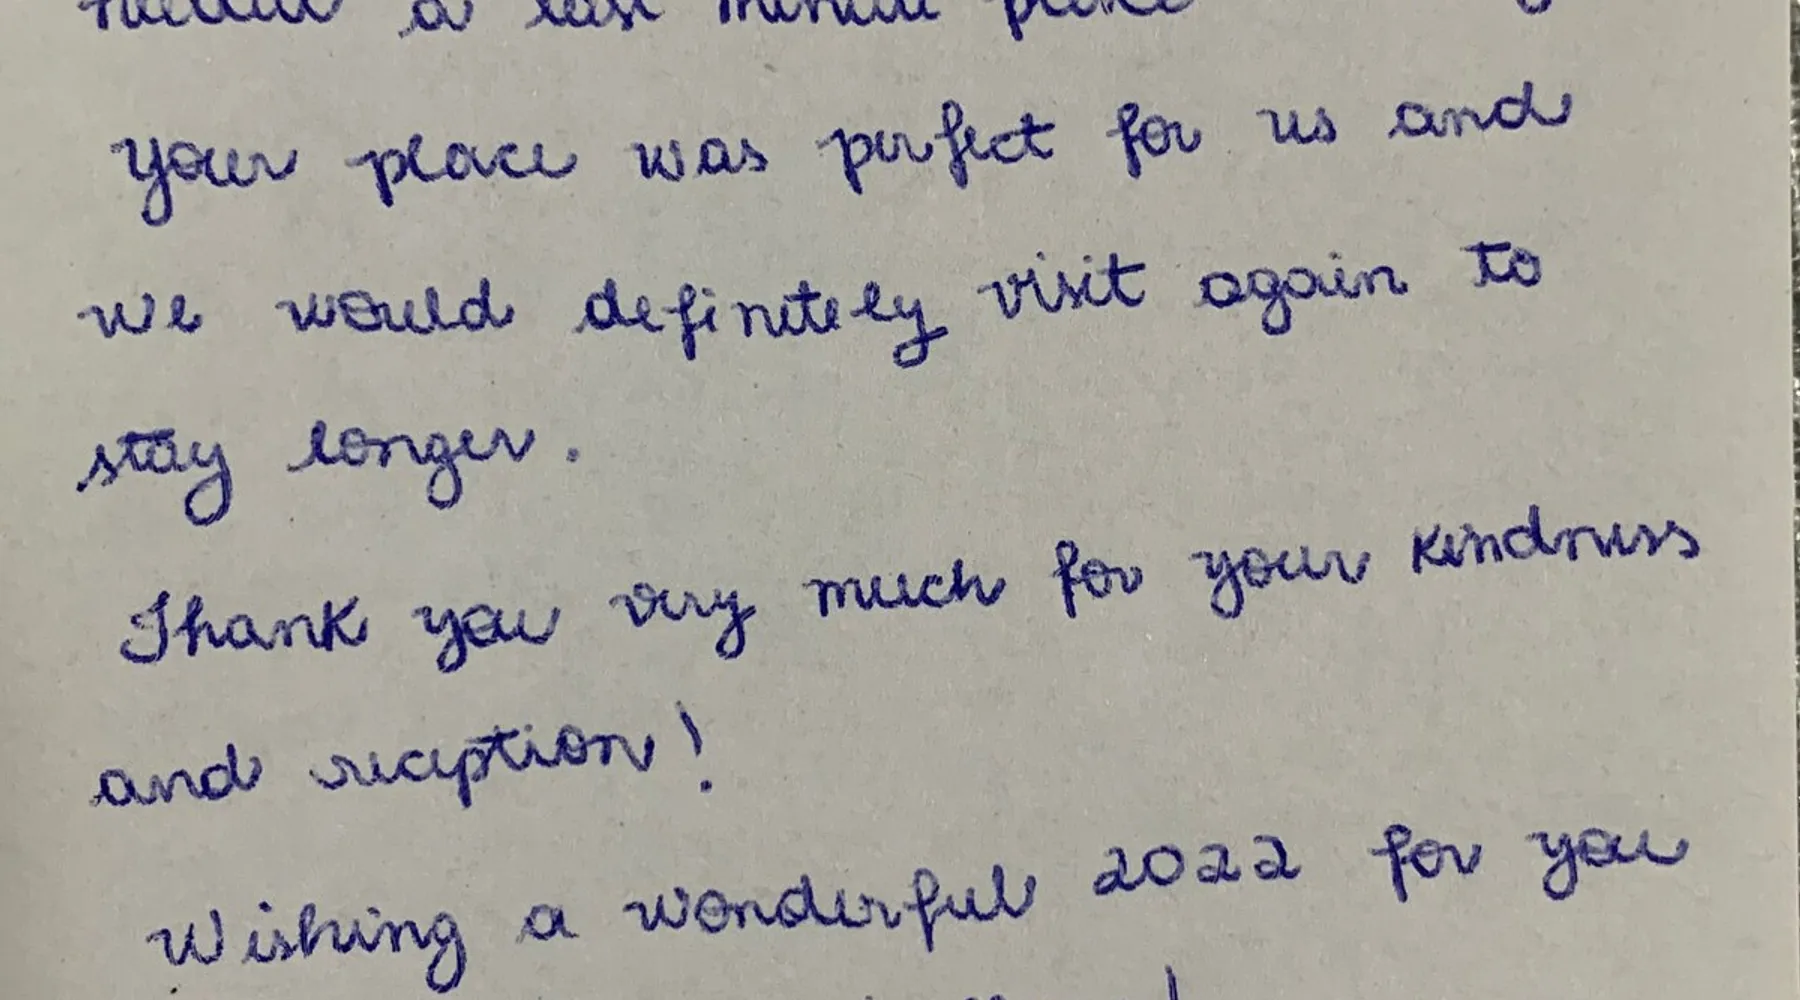 needed a last minute place
Your place was perfect for us and
we would definitely visit again to
stay longer.
Thank you very much for your kindness
and reception!
Wishing a wonderful 2022 for you